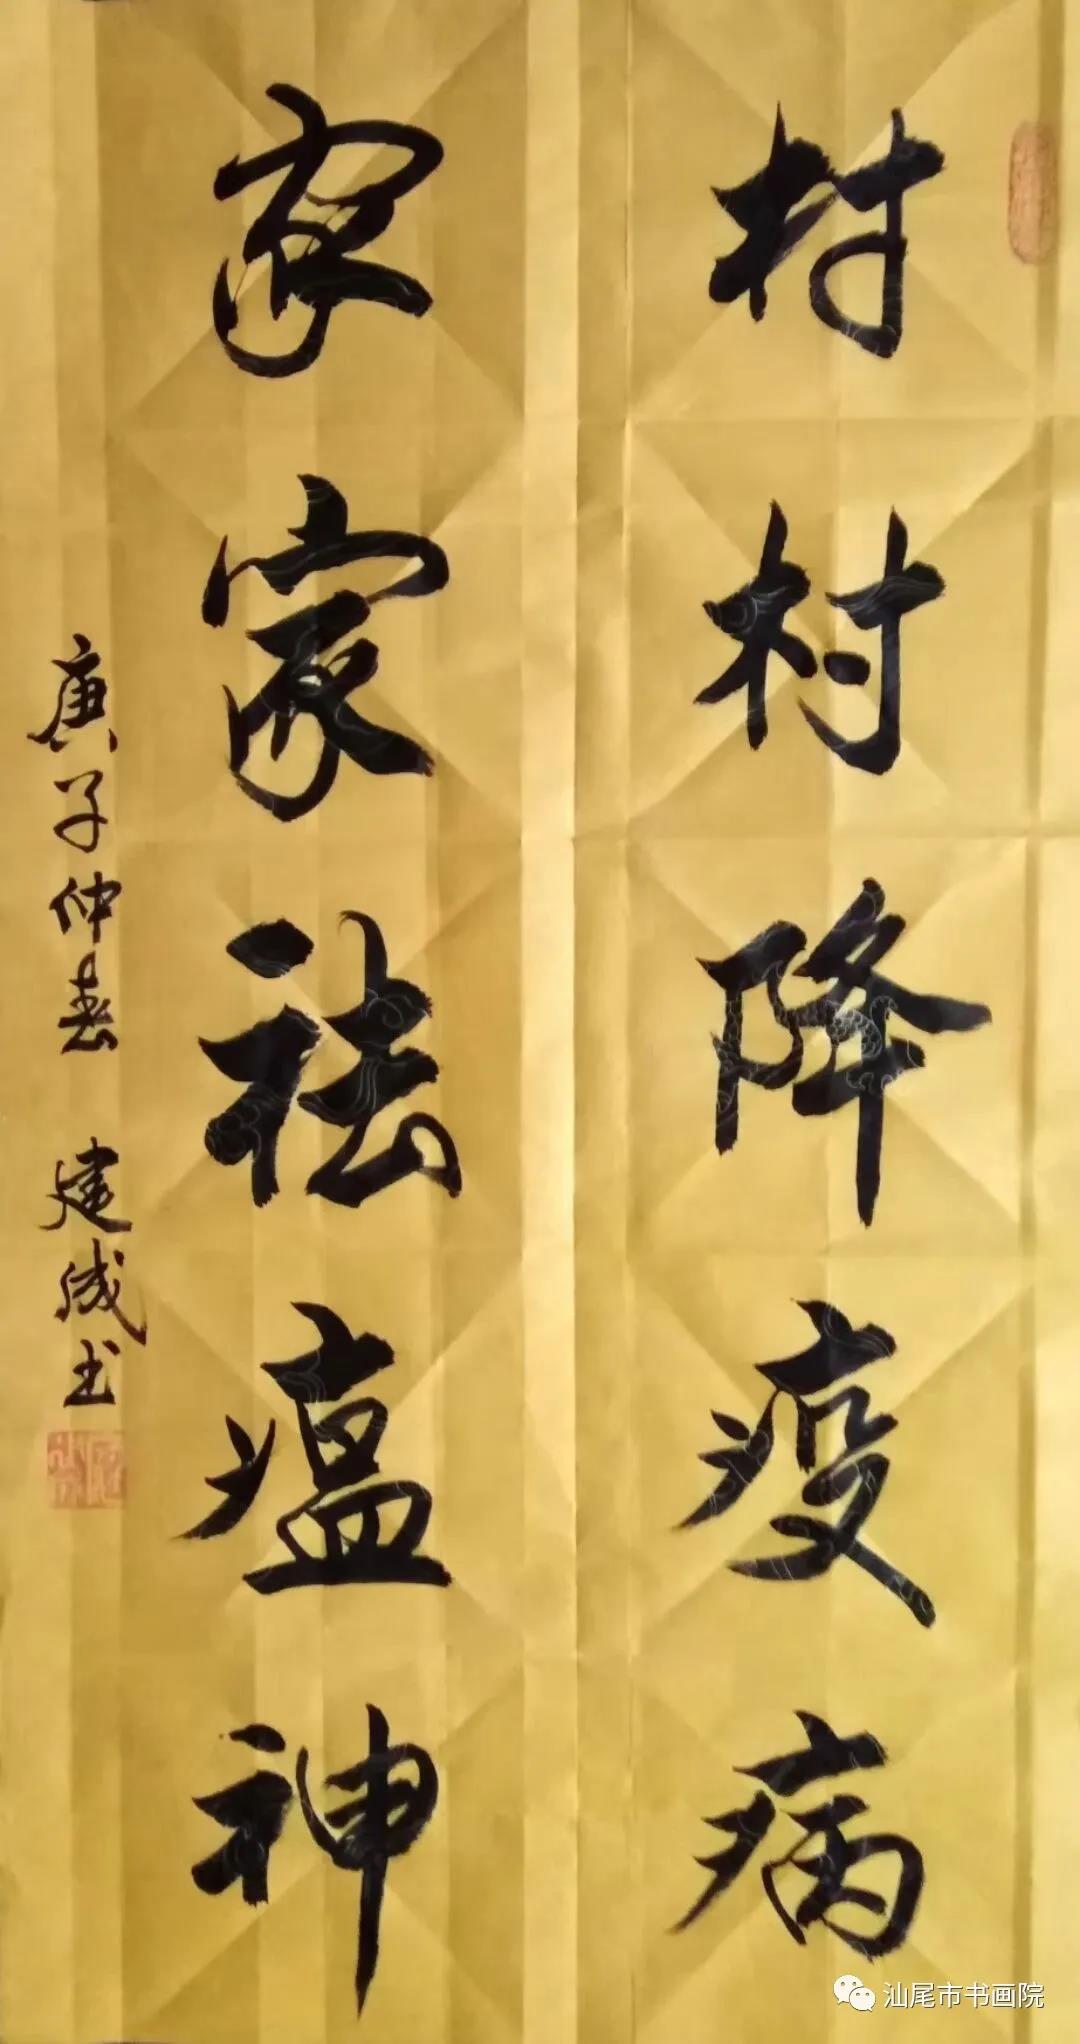 村村降疫病
家家祛瘟神
庚子仲春 建成书
汕尾市书画院